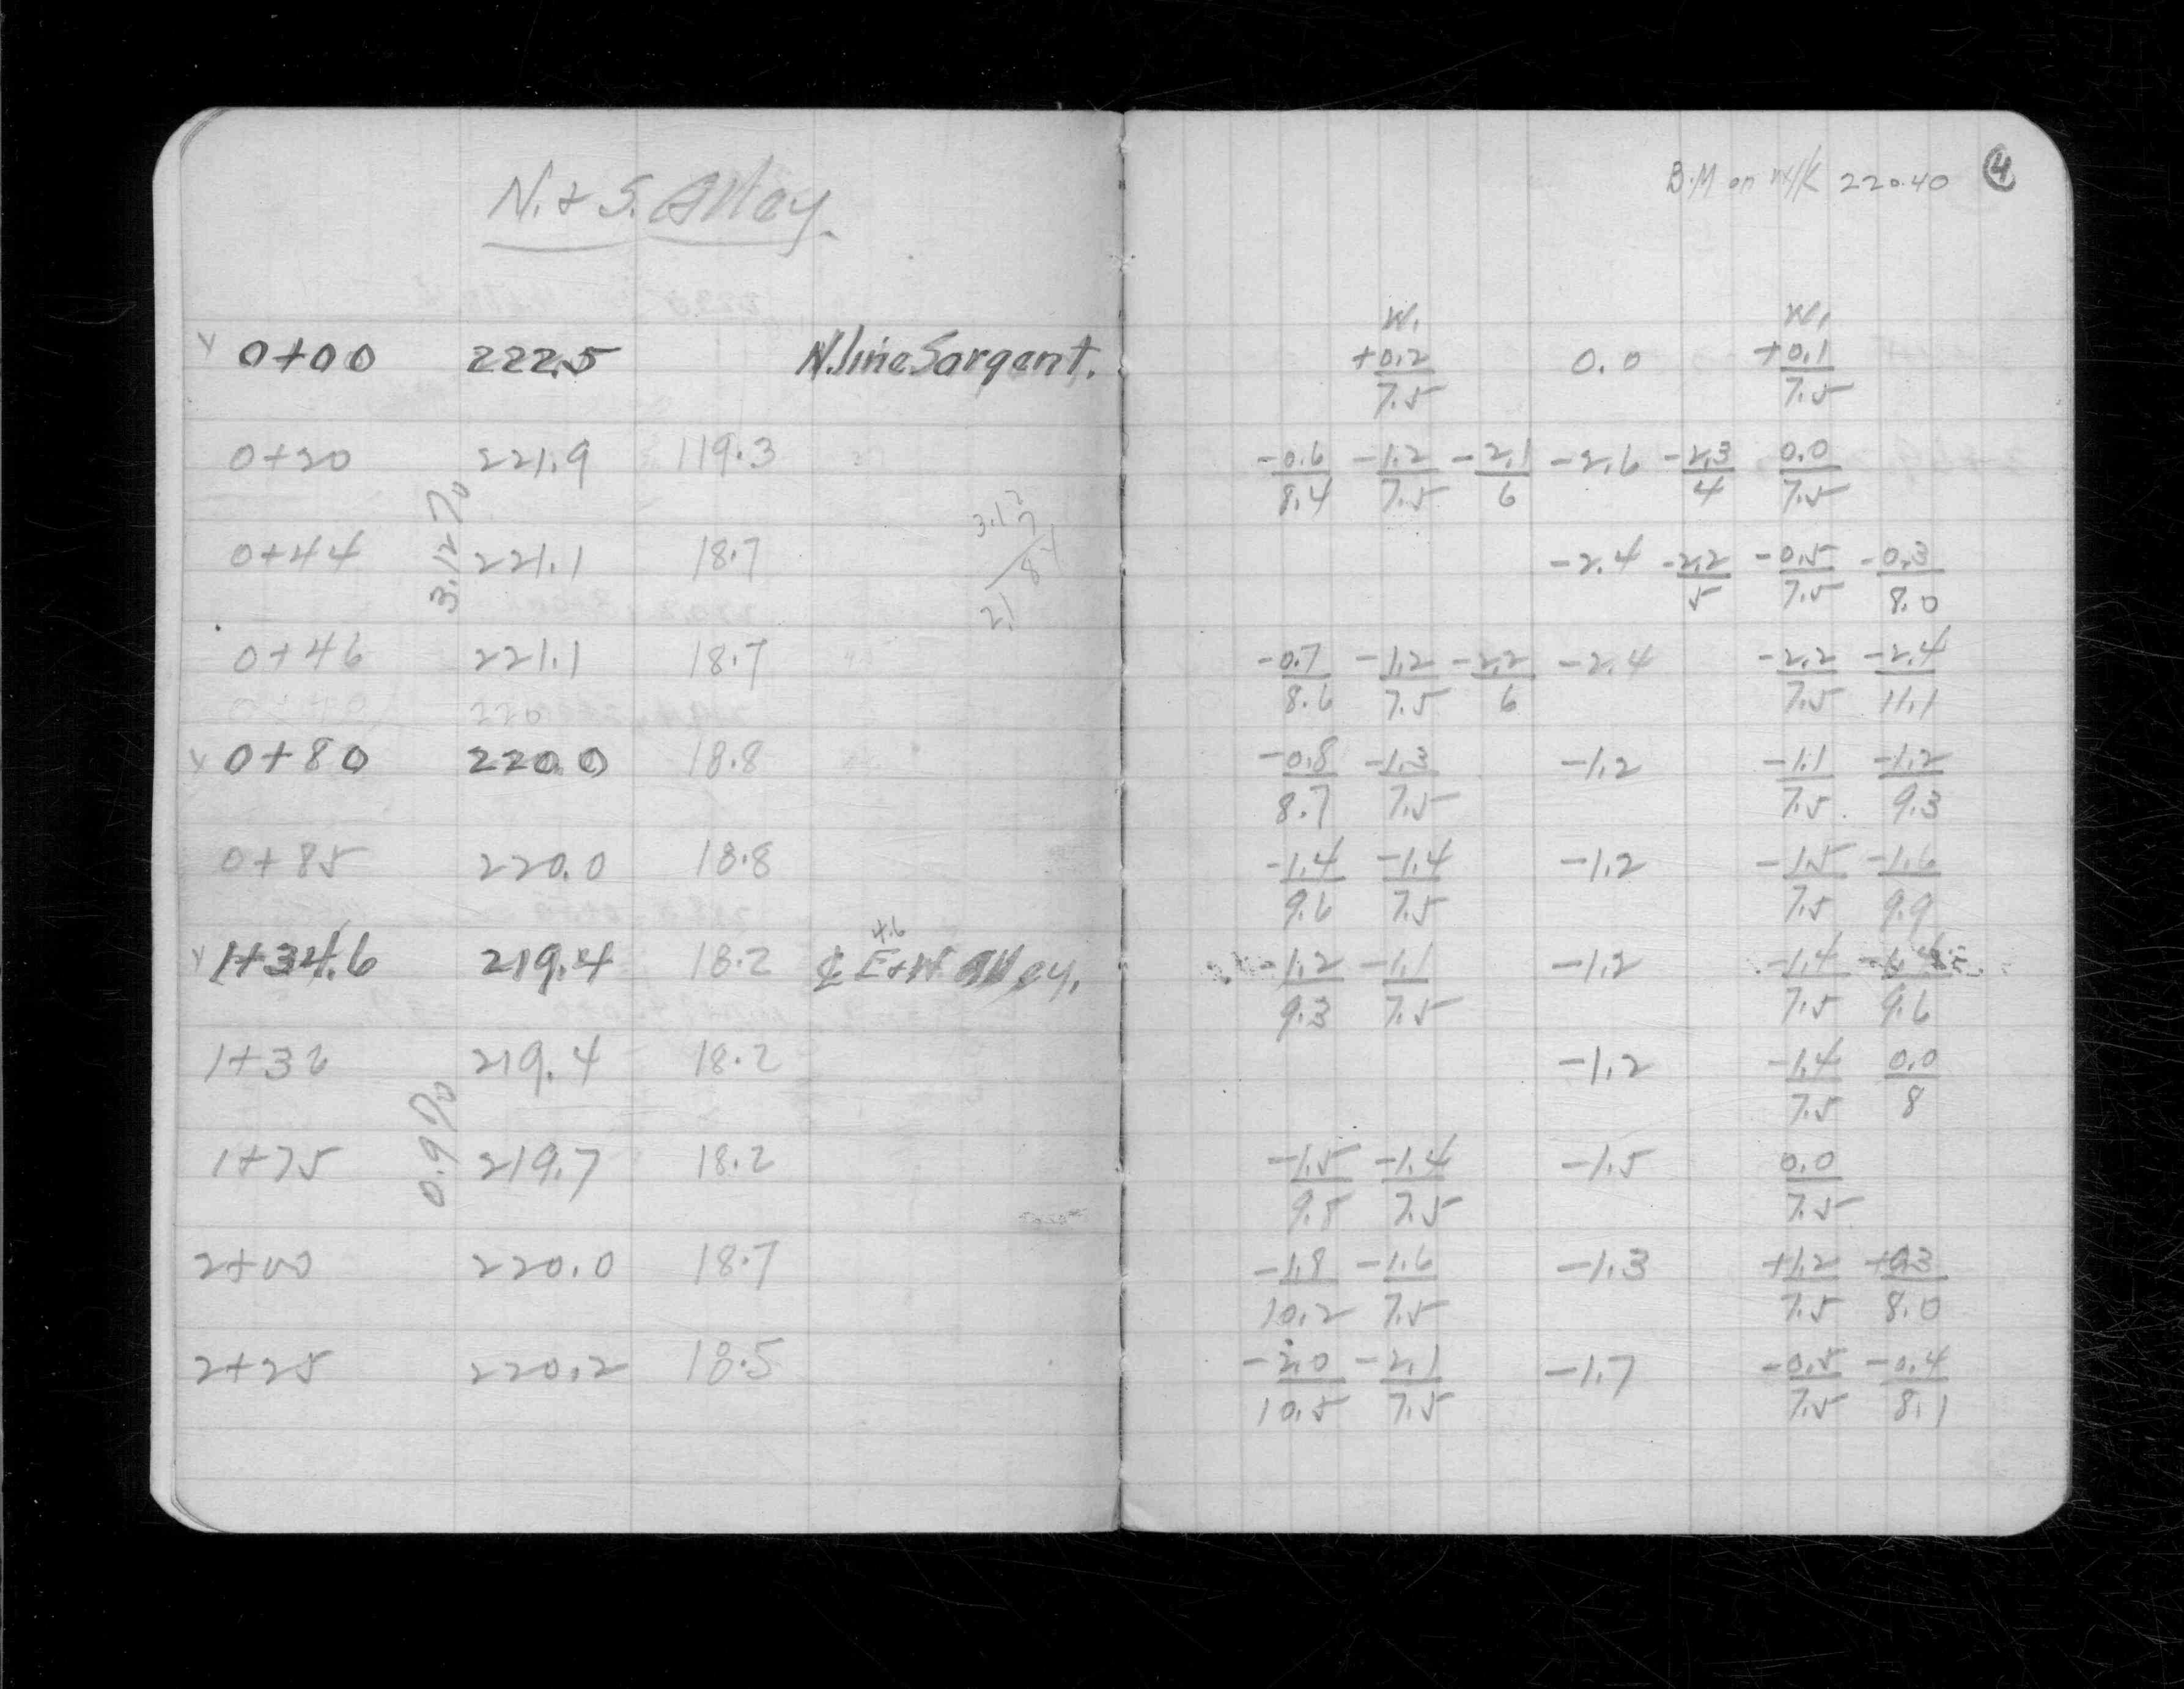 N. & S. Alley.
0+00 222.5 N. line Sargent.
0+20 221.9 119.3
3.12%
0+44 221.1 18.7
0+46 221.1 18.7
0+80 220.0 18.8
0+85 220.0 18.8
4.6
1+34.6 219.4 18.2 ℄ E & W Alley.
1+36 219.4 18.2
0.9%
1+75 219.7 18.2
2+00 220.0 18.7
2+25 220.2 18.5
B.M on 220.40 4
W. W.
+0.2 0.0 +0.1
7.5 7.5
-0.6 -1.2 -2.1 -2.6 -2.3 0.0
8.4 7.5 6 4 7.5
-2.4 -2.2 -0.5 -0.3
5 7.5 8.0
-0.7 -1.2 -2.2 -2.4 -2.2 -2.4
8.6 7.5 6 7.5 11.1
-0.8 -1.3 -1.2 -1.1 -1.2
8.7 7.5 7.5 9.3
-1.4 -1.4 -1.2 -1.5 -1.6
9.6 7.5 7.5 9.9
-1.2 -1.1 -1.2 -1.4
9.3 7.5 7.5 9.6
-1.2 -1.4 0.0
7.5 8
-1.5 -1.4 -1.5 0.0
9.8 7.5 7.5
-1.8 -1.6 -1.3 +1.2 +0.3
10.2 7.5 7.5 8.0
-2.0 -2.1 -1.7 -0.5 -0.4
10.5 7.5 7.5 8.1